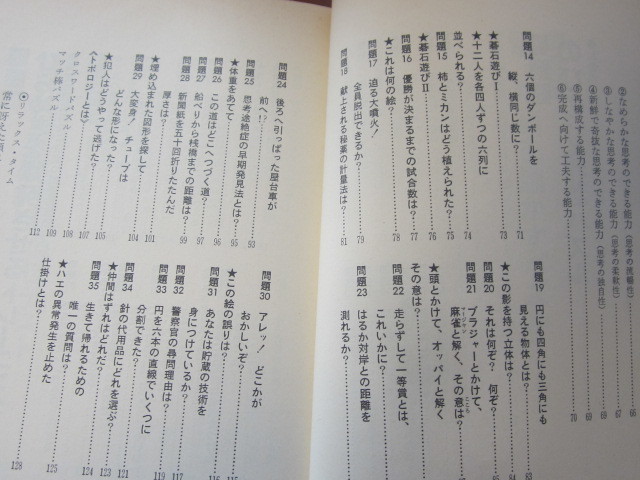 ②なめらかな思考のできる能力(思考の流暢性)……66
③しなやかな思考のできる能力(思考の柔軟性)……67
④新鮮で奇抜な思考のできる能力(思考の独自性)……69
⑤再構成する能力……69
⑥完成へ向けて工夫する能力……70
問題14 六個のダンボールを
縦、横同じ数に?……71
★碁石遊びⅠ……73
★十二人を各四人ずつの六列に
並べられる?……74
問題15 柿とミカンはどう植えられた?……75
★碁石遊びⅡ……76
問題16 優勝が決まるまでの試合数は?……77
★これは何の絵?……78
問題17 迫る大噴火!
全員脱出できるか?……79
問題18 献上される秘薬の計量法は?……81
問題19 円にも四角にも三角にも
見える物体とは?……83
★この影を持つ立体は?
問題20 それは何ぞ? 何ぞ?
問題21 ブラジャーとかけて、
麻雀と解く、その意は?
★頭とかけて、オッパイと解く
その意は?
問題22 走らずして一等賞とは、
これいかに?
問題23 はるか対岸との距離を
測れるか?
問題24 後ろへ引っぱった屋台車が
前へ?……93
問題25 思考途絶症の早期発見法とは?……95
★体重をあてて……96
問題26 この道はどこへつづく道?……96
問題27 船べりから桟橋までの距離は?……97
問題28 新聞紙を五十回折りたたんだ
厚さは?……99
★埋め込まれた図形を探して……101
問題29 大変身! チューブは
どんな形になった?……104
★犯人はどうやって逃げた?……105
〈トポロジーとは〉……107
クロスワードパズル……108
マッチ棒パズル……109
●リラックス・タイム……112
問題30 アレッ! どこかが
おかしいぞ?
★この絵の誤りは?……115
問題31 あなたは貯蔵の技術を
身につけているか?……116
問題32 警察官の尋問理由は?……117
問題33 円を六本の直線でいくつに
分割できた?……119
問題34 針の代用品にどれを選ぶ?……121
★仲間はずれはどれだ?……123
問題35 生きて帰れるための
唯一の質問は?……124
★ハエの異常発生を止めた
仕掛けとは?……125
128